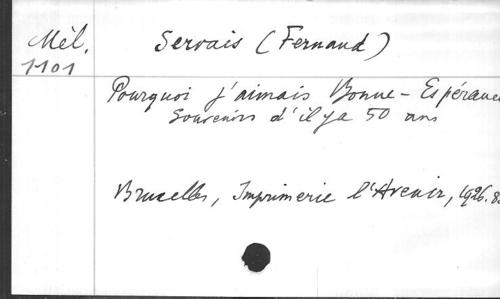 Mél.
1101
Servais (Fernand)
Pourquoi j'aimais Bonne-Espérance
Souvenirs d'il y a 50 ans
Bruxelles, Imprimerie l'Avenir, 1926. 8